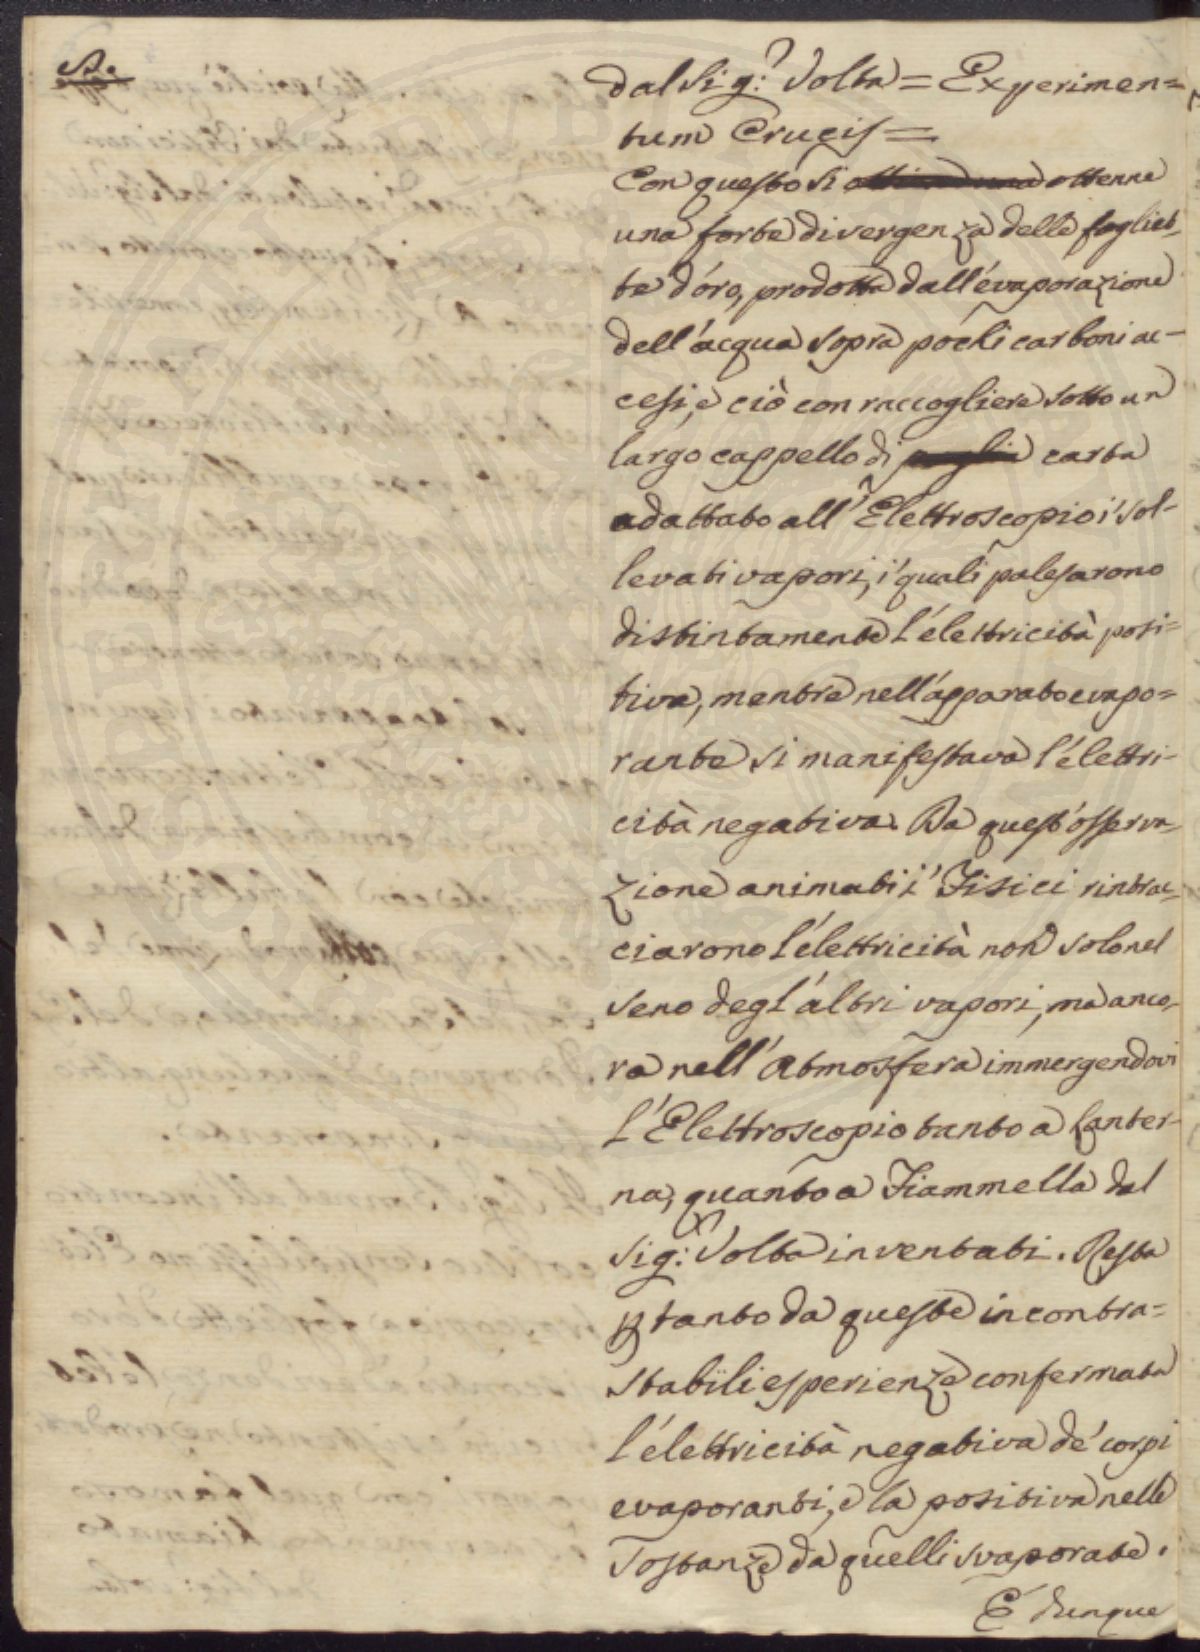 dal Sig:r Volta = Experimen=
tum Crucis =
Con questo si ottenne
una forte divergenza delle fogliet-
te d'óro, prodotta dall'évaporazione
dell'ácqua sopra pochi carboni ac-
cesi, e ciò con raccogliere sotto un
largo cappello di carta
adattato all'Elettroscopio i' sol-
levati vapori, i' quali palesarono
distintamente l'élettricità posi=
tiva, mentre nell'ápparato evapo=
rante si manifestava l'élettri-
cità negativa. Da quest'ósserva-
zione animati i' Fisici rintrac-
ciarono l'élettricità non solo nel
seno degl'áltri vapori, ma anco-
ra nell'Atmosfera immergendovi
l'Elettroscopio tanto a Lanter-
na, quanto a Fiammella dal
Sig:r Volta inventati. Resta
ꝑ tanto da queste incontra=
stabili esperienze confermata
l'élettricità negativa de' corpi
evaporanti, e la positiva nelle
sostanze da quelli svaporate.
É dunque